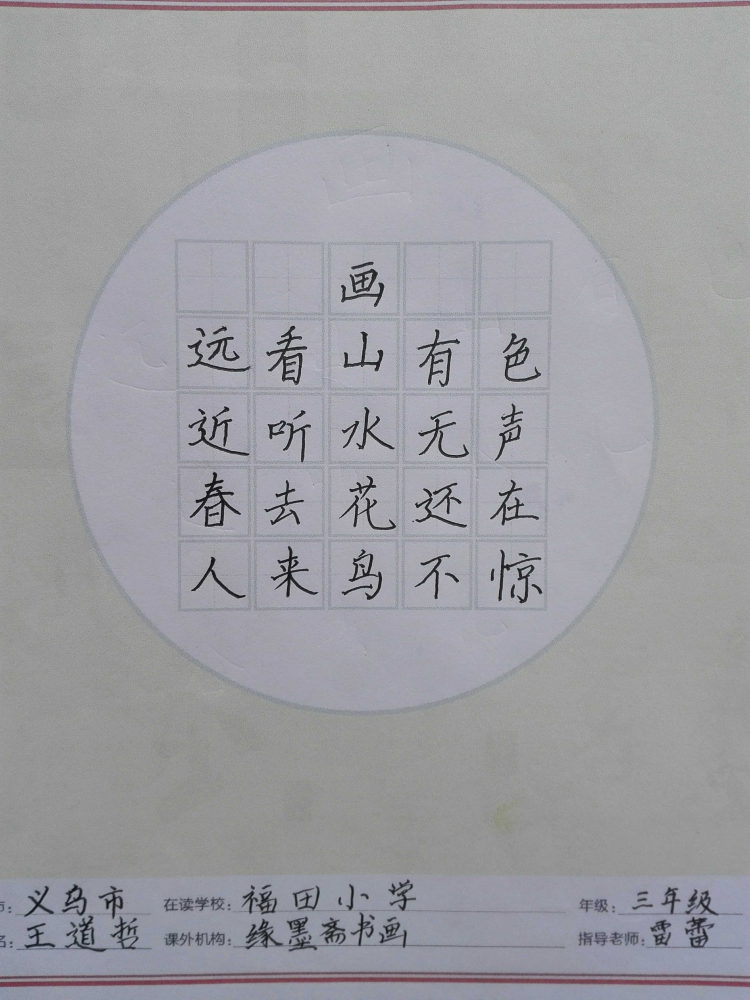 画
远看山有色
近听水无声
春去花还在
人来鸟不惊
市：义乌市 在读学校：福田小学 年级：三年级
名：王道哲 课外机构：缘墨斋书画 指导老师：雷蕾